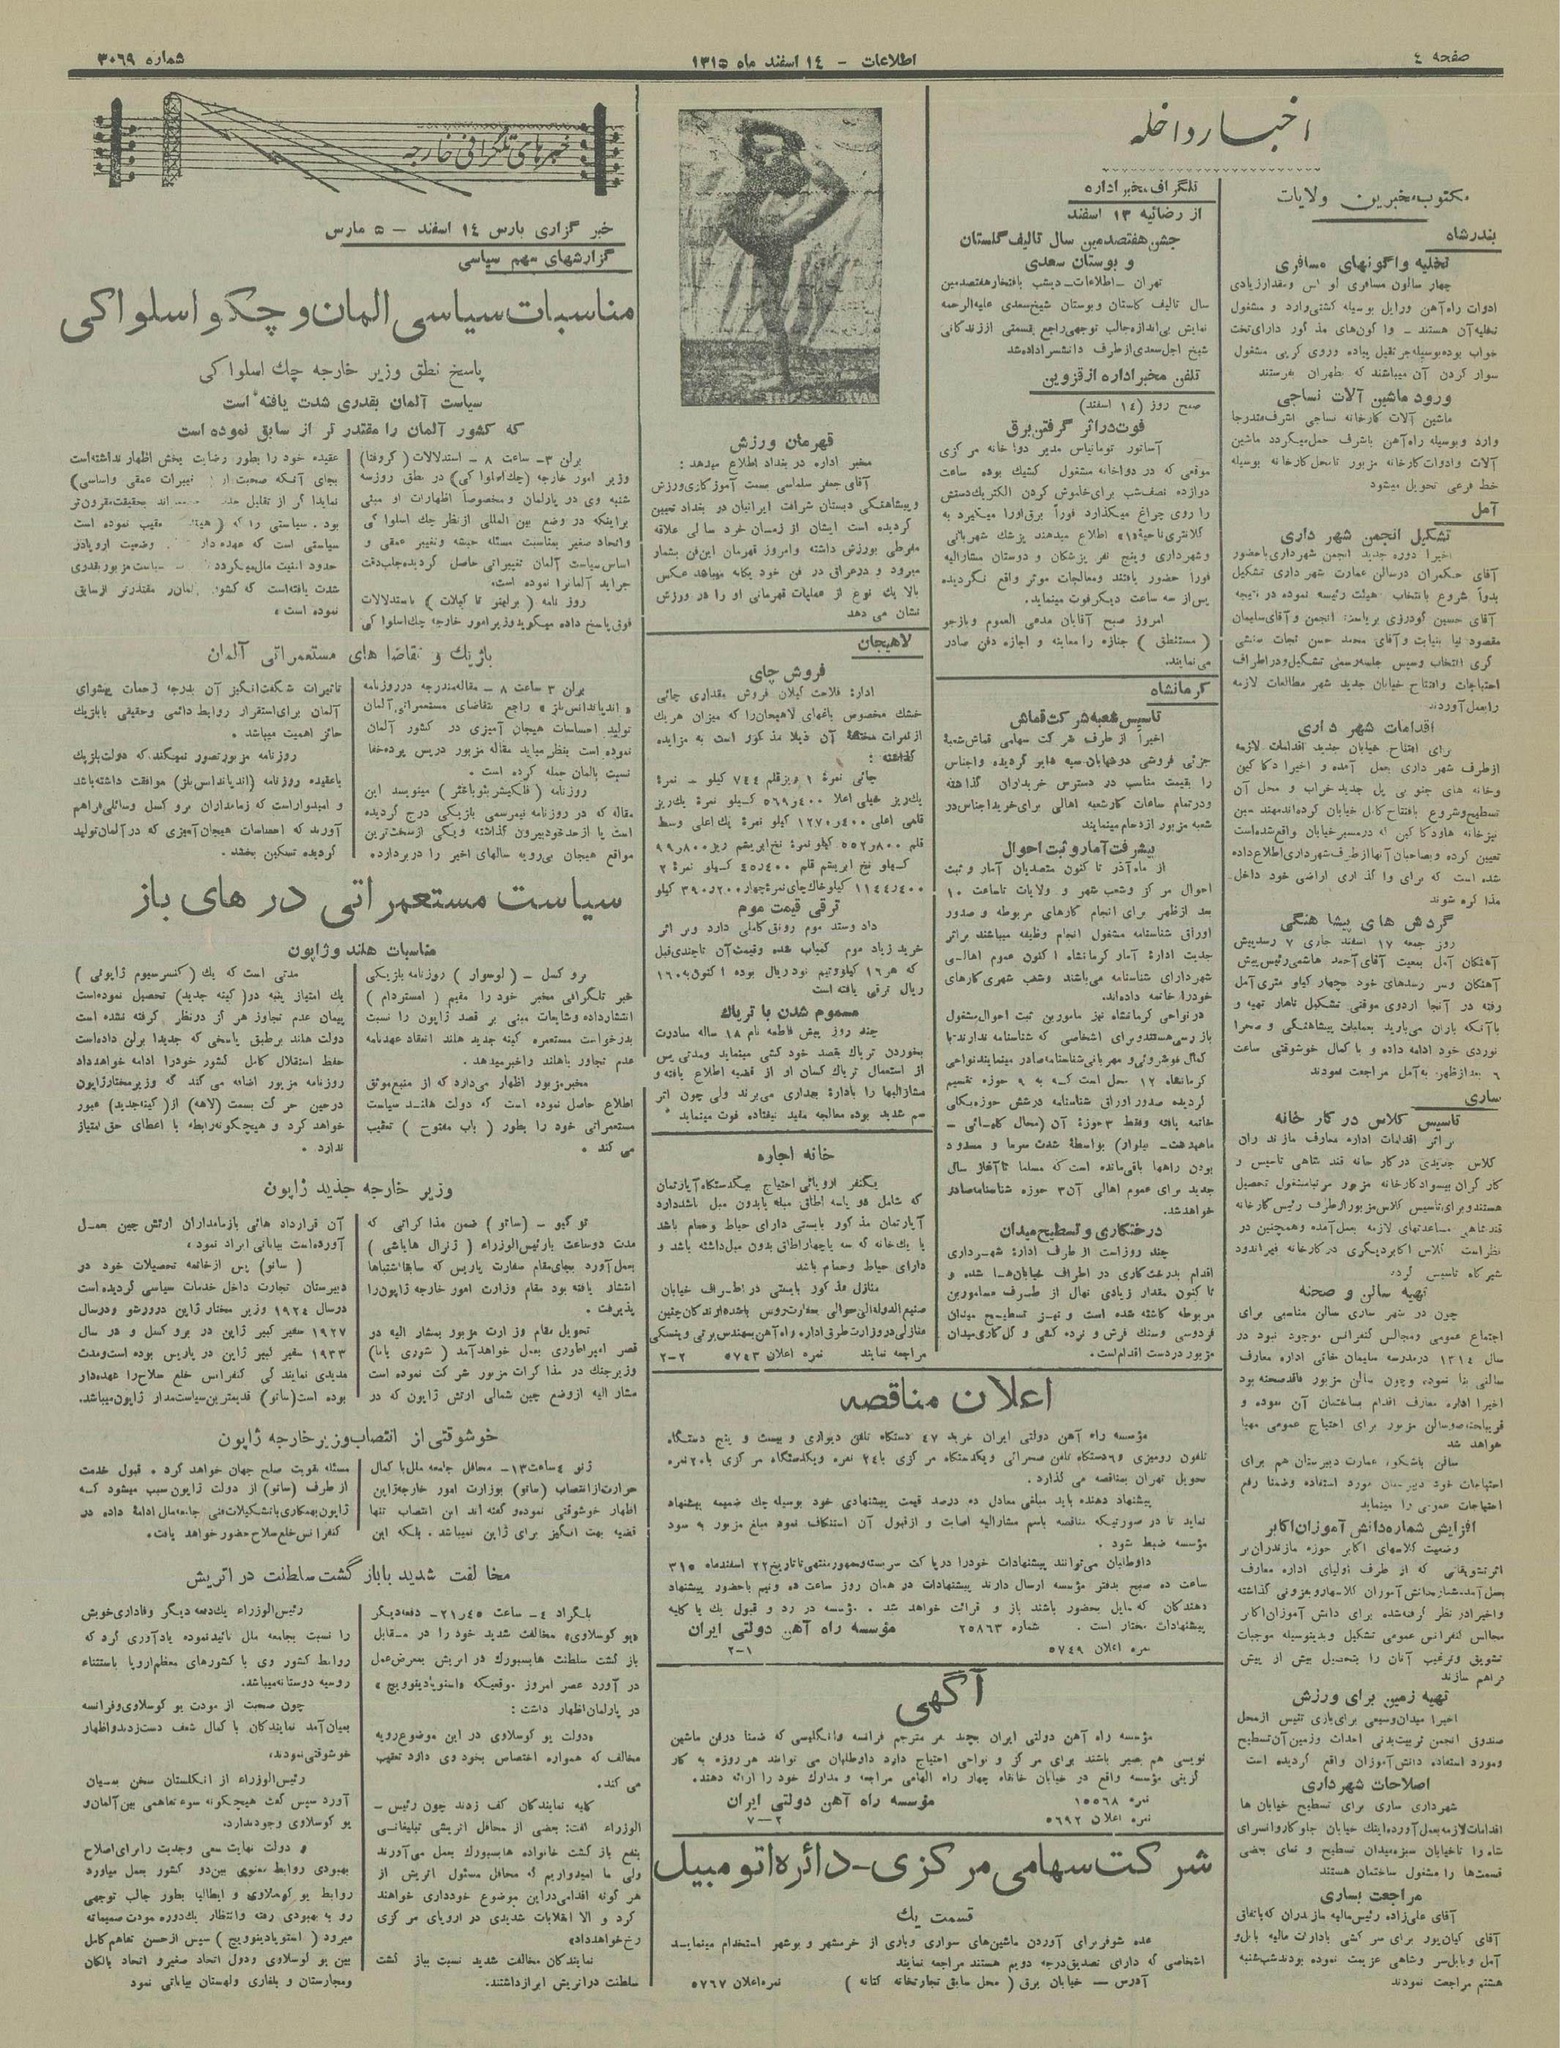 صفحه ٤
اطلاعات - ١٤ اسفند ماه ١٣١٥
شماره ٣٠٦٩
اخبار داخله
مکتوب مخبرین ولایات
بندرشاه
تخلیه واگونهای مسافری
چهار سالون مسافری لو کس ومقدارزیادی
ادوات راه آهن ورایل بوسیله کشتی وارد و مشغول
تخلیه آن هستند - وا گون‌های مذ گور دارای تخت
خواب بوده بوسیله جر ثقیل پیاده وروی گریی مشغول
سوار کردن آن میباشند که بطهران بفرستند
ورود ماشین آلات نساجی
ماشین آلات کارخانه نساجی اشرف متدرجا
وارد وبوسیله راه آهن باشرف حمل میگردد ماشین
آلات وادوات کارخانه مزبور تا محل کارخانه بوسیله
خط فرعی تحویل میشود
آمل
تشکیل انجمن شهر داری
اخیرا دوره جدید انجمن شهرداری با حضور
آقای حکمران درسالن عمارت شهر داری تشکیل
بدواً شروع بانتخاب هیئت رئیسه نموده در نتیجه
آقای حسین گودرزی بریاست انجمن و آقای سلیمان
مقصود نیا بنیابت وآقای محمد حسن نجات منشی
گری انتخاب وسپس جلسه رسمی تشکیل ودراطراف
احتیاجات وافتتاح خیابان جدید شهر مطالعات لازمه
را بعمل آوردند
اقدامات شهر داری
برای افتتاح خیابان جدید اقدامات لازمه
ازطرف شهر داری بعمل آمده و اخیرا دکا کین
وخانه های جنو بی پل جدید خراب و محل آن
تسطیح وشروع بافتتاح کامل خیابان کرده اند مهند سین
نیز خانه هاود کا کین که درمسیر خیابان واقع شده است
تعیین کرده وبصاحبان آنها ازطرف شهرداری اطلاع داده
شده است که برای وا گذاری اراضی خود داخل
مذا کره شوند
گردش های پیشا هنگی
روز جمعه ١٧ اسفند جاری ٧ رسدپیش
آهنگان آمل بمعیت آقای احمد هاشمی رئیس پیش
آهنگان وسر رسدهای خود بچهار کیلو متری آمل
رفته در آنجا اردوی موقتی تشکیل ناهار تهیه و
باآنکه باران می‌بارید بعملیات پیشاهنگی و صحرا
نوردی خود ادامه داده و با کمال خوشوقتی ساعت
٦ بعد ازظهر به آمل مراجعت نمودند
ساری
تاسیس کلاس در کار خانه
براثر اقدامات اداره معارف مازند ران
کلاس جدیدی در کار خانه قند شاهی تاسیس و
کار گران بیسواد کارخانه مزبور مرتبا مشغول تحصیل
هستند وبرای تاسیس کلاس مزبور ازطرف رئیس کارخانه
قند شاهی مساعدتهای لازمه بعمل آمده وهمچنین در
نظر است کلاس اکابر دیگری در کارخانه قیر اندود
شیرگاه تاسیس گردد
تهیه سالن و صحنه
چون در شهر ساری سالن مناسبی برای
اجتماع عمومی ومجالس کنفرانس موجود نبود در
سال ١٣١٤ در مدرسه سلیمان خانی اداره معارف
سالنی بنا نموده وچون سالن مزبور فاقد صحنه بود
اخیرا اداره معارف اقدام بساختمان آن نموده و
قریبا صحنه وسالن مزبور برای احتیاج عمومی مهیا
خواهد شد
سالن باشکوه عمارت دبیرستان هم برای
احتیاجات خود دبیرستان مورد استفاده وضمنا رفع
احتیاجات عمومی را مینماید
افزایش شماره دانش آموزان اکابر
وضعیت کلاسهای اکابر حوزه مازندران بر
اثر تشویقاتی که از طرف اولیای اداره معارف
بعمل آمد شماره دانش آموزان کلاسها رو بفزونی گذاشته
واخیرا در نظر گرفته شده برای دانش آموزان اکابر
مجالس کنفرانس عمومی تشکیل وبدینوسیله موجبات
تشویق وترغیب آنان را بتحصیل بیش از پیش
فراهم سازند
تهیه زمین برای ورزش
اخیرا میدان وسیعی برای بازی تنیس ازمحل
صندوق انجمن تربیت بدنی احداث وزمین آن تسطیح
ومورد استفاده دانش آموزان واقع گردیده است
اصلاحات شهرداری
شهرداری ساری برای تسطیح خیابان ها
اقدامات لازمه بعمل آورده اینک خیابان جلو کاروانسرای
شاه را تاخیابان سبزه میدان تسطیح و نمای بعضی
قسمت‌ها را مشغول ساختمان هستند
مراجعت بساری
آقای علی زاده رئیس مالیه مازندران که باتفاق
آقای کیان‌پور برای سر کشی بادارت مالیه بابل و
آمل وبابل سر وشاهی عزیمت نموده بودند شب شنبه
هشتم مراجعت نمودند
تلگراف مخبر اداره
از رضائیه ١٣ اسفند
جشن هفتصدمین سال تالیف گلستان
و بوستان سعدی
تهران -اطلاعات- دیشب بافتخار هفتصدمین
سال تالیف گلستان وبوستان شیخ سعدی علیه الرحمه
نمایش بی‌اندازه جالب توجهی راجع بقسمتی اززندگانی
شیخ اجل سعدی ازطرف دانشسرا داده شد
تلفن مخبر اداره از قزوین
صبح روز (١٤ اسفند)
فوت در اثر گرفتن برق
آسانور تومانیاس مدیر دوا خانه مر کزی
موقعی که در دواخانه مشغول کشیک بوده ساعت
دوازده نصف شب برای خاموش کردن الکتریک دستش
را روی چراغ میگذارد فوراً برق اورا میگیرد به
کلانتری ناحیه «١» اطلاع میدهند پزشک شهربانی
وشهرداری وپنج نفر پزشکان و دوستان مشارالیه
فورا حضور یافتند ومعالجات موثر واقع نگردیده
پس از سه ساعت دیگر فوت مینماید.
امروز صبح آقایان مدعی العموم وبازجو
( مستنطق ) جنازه را معاینه و اجازه دفن صادر
می نمایند.
کرمانشاه
تاسیس شعبه شرکت قماش
اخیراً از طرف شر کت سهامی قماش شعبهٔ
جزئی فروشی دو خیابان سپه دایر گردیده واجناس
را بقیمت مناسب در دسترس خریداران گذاشته
ودر تمام ساعات کار شعبه اهالی برای خرید اجناس در
شعبه مزبور ازدحام مینمایند
پیشرفت آمار و ثبت احوال
از ماه آذر تا کنون متصدیان آمار و ثبت
احوال مر کز وشعب شهر و ولایات تاساعت ١٠
بعد ازظهر برای انجام کارهای مربوطه و صدور
اوراق شناسنامه مشغول انجام وظیفه میباشند براثر
جدیت ادارهٔ آمار کرمانشاه ا کنون عموم اهالی
شهر دارای شناسنامه می‌باشند وشعب شهری کارهای
خودرا خاتمه داده‌اند.
در نواحی کرمانشاه نیز مامورین ثبت احوال مشغول
باز رسی هستند وبرای اشخاصی که شناسنامه ندارند با
کمال خوشروئی و مهربانی شناسنامه صادر مینمایند نواحی
کرمانشاه ١٢ محل است که به ٩ حوزه تقسیم
گردیده صدور اوراق شناسنامه درشش حوزه بکلی
خاتمه یافته وفقط ٣ حوزهٔ آن (محال کلهائی -
ماهیدشت - بیلوار) بواسطهٔ شدت سرما و مسدود
بودن راهها باقی مانده است که مسلما تا آغاز سال
جدید برای عموم اهالی آن ٣ حوزه شناسنامه صادر
خواهد شد.
درختکاری و تسطیح میدان
چند روز است از طرف ادارهٔ شهرداری
اقدام بدرخت کاری در اطراف خیابان‌ها شده و
تا کنون مقدار زیادی نهال از طرف مامورین
مربوطه کاشته شده است و نیز تسطیح میدان
فردوسی وسنگ فرش و نرده کشی و گل کاری میدان
مزبور در دست اقدام است.
قهرمان ورزش
مخبر اداره در بغداد اطلاع میدهد :
آقای جعفر سلماسی بسمت آموزگاری ورزش
وپیشاهنگی دبستان شرافت ایرانیان در بغداد تعیین
گردیده است ایشان از زمان خرد سالی علاقه
مفرطی بورزش داشته وامروز قهرمان این فن بشمار
میرود و درعراق در فن خود یگانه میباشد عکس
بالا یک نوع از عملیات قهرمانی او را در ورزش
نشان می دهد
لاهیجان
فروش چای
ادارهٔ فلاحت گیلان فروش مقداری چائی
خشک مخصوص باغهای لاهیجان را که میزان هریک
از نمرات مختلفهٔ آن ذیلا مذ کور است به مزایده
گذاشته :
چائی نمرهٔ ١ ریز قلم ٧٤٤ کیلو - نمرهٔ
یک ریز خیلی اعلا ٤٠٠ر٥٦٩ کیلو نمرهٔ یک ریز
قلمی اعلی ٤٠٠ر١٢٧٠ کیلو نمرهٔ یک اعلی وسط
قلم ٨٠٠ر٥٥٢ کیلو نمرهٔ نخ ابریشم ریز ٨٠٠ر٩٩
کیلو نخ ابریشم قلم ٤٠٠ر٤٥ کیلو نمرهٔ ٢
٤٠٠ر١١٤٤ کیلو خاک چای نمرهٔ چهار ٢٠٠ر٣٩٠ کیلو
ترقی قیمت موم
داد وستد موم رونق کاملی دارد وبر اثر
خرید زیاد موم کمیاب شده وقیمت آن تاچندی قبل
که هر ١٦ کیلو ونیم نود ریال بوده ا کنون به ١٦٠
ریال ترقی یافته است
مسموم شدن با تریاک
چند روز پیش فاطمه نام ١٨ ساله مبادرت
بخوردن تریاک بقصد خود کشی مینماید ومدتی پس
از استعمال تریاک کسان او از قضیه اطلاع یافته و
مشارالیها را بادارهٔ بهداری می‌برند ولی چون اثر
سم شدید بوده معالجه مفید نیفتاده فوت مینماید
خانه اجاره
یکنفر اروپائی احتیاج بیکدستگاه آپارتمان
که شامل دو یاسه اطاق مبله یابدون مبل باشددارد
آپارتمان مذ کور بایستی دارای حیاط وحمام باشد
یا یک خانه که سه یاچهار اطاق بدون مبل داشته باشد و
دارای حیاط وحمام باشد
منازل مذ کور بایستی در اطراف خیابان
صنیع الدوله الی حوالی سفارت روس باشد دارند گان چنین
منازلی در وزارت طرق اداره راه آهن بمهندس برتی ویتسکی
مراجعه نمایند نمره اعلان ٥٧٤٣ ٢-٢
اعلان مناقصه
مؤسسه راه آهن دولتی ایران خرید ٤٧ دستگاه تلفن دیواری و بیست و پنج دستگاه
تلفون رومیزی و ٦ دستگاه تلفن صحرائی ویکدستگاه مر کزی با ٢٤ نمره ویکدستگاه مر کزی با ٢٠ نمره
تحویل تهران بمناقصه می گذارد.
پیشنهاد دهنده باید مبلغی معادل ده درصد قیمت پیشنهادی خود بوسیله چک ضمیمه پیشنهاد
نماید تا در صورتیکه مناقصه باسم مشارالیه اصابت و ازقبول آن استنکاف نمود مبلغ مزبور به سود
مؤسسه ضبط شود .
داوطلبان می‌توانند پیشنهادات خودرا در پا کت سر بسته وممهور منتهی تا تاریخ ٢٢ اسفند ماه ٣١٥
ساعت ده صبح بدفتر مؤسسه ارسال دارند پیشنهادات در همان روز ساعت ده ونیم باحضور پیشنهاد
دهندگان که مایل بحضور باشند باز و قرائت خواهد شد . مؤسسه در رد و قبول یک یا کلیه
پیشنهادات مختار است . شماره ٢٥٨٦٣ مؤسسه راه آهن دولتی ایران
نمره اعلان ٥٧٤٩ ٢-١
آگهی
مؤسسه راه آهن دولتی ایران بچند نفر مترجم فرانسه وانگلیسی که ضمنا درفن ماشین
نویسی هم بصیر باشند برای مر کز و نواحی احتیاج دارد داوطلبان می توانند هر روزه به کار
گزینی مؤسسه واقع در خیابان خانقاه چهار راه الهامی مراجعه و مدارک خود را ارائه دهند.
نمره ١٥٥٦٨ مؤسسه راه آهن دولتی ایران
نمره اعلان ٥٦٩٢ ٢-٧
شرکت سهامی مرکزی-دائره اتومبیل
قسمت یک
عده شوفر برای آوردن ماشین‌های سواری وباری از خرمشهر و بوشهر استخدام مینماید
اشخاصی که دارای تصدیق درجه دویم هستند مراجعه نمایند
آدرس - خیابان برق ( محل سابق تجارتخانه کتانه ) نمره اعلان ٥٧٦٧
خبرهای تلگرافی خارجه
خبر گزاری پارس ١٤ اسفند - ٥ مارس
گزارشهای مهم سیاسی
مناسبات سیاسی المان و چک و اسلواکی
پاسخ نطق وزیر خارجه چک اسلوا کی
سیاست آلمان بقدری شدت یافته است
که کشور آلمان را مقتدر تر از سابق نموده است
برلن ٣- ساعت ٨ - استدلالات ( کروفتا)
وزیر امور خارجه (چک اسلوا کی) در نطق روز سه
شنبه وی در پارلمان ومخصوصاً اظهارات او مبنی
براینکه در وضع بین المللی از نظر چک اسلوا کی
واتحاد صغیر بمناسبت مسئله حبشه وتغییر عمقی و
اساس سیاست آلمان تغییراتی حاصل گردیده جلب دقت
جراید آلمانرا نموده است.
روز نامه ( برلینر تا کبلات ) باستدلالات
فوق پاسخ داده میگوید وزیر امور خارجه چک اسلوا کی
عقیده خود را بطور رضایت بخش اظهار نداشته است
بجای آنکه صحبت از ( تغییرات عمقی واساسی)
نماید اگر از تقلیل بحقیقت مقرون تر
بود . سیاستی را که ( تعقیب نموده است
سیاستی است که عهده دار وضعیت اروپا در
حدود امنیت مال میگردد سیاست مزبور بقدری
شدت یافته است که کشور آلمان مقتدر تر از سابق
نموده است »
بلژیک و تقاضا های مستعمراتی آلمان
برلن ٣ ساعت ٨ - مقاله مندرجه در روزنامه
« اندپاندانس بلژ » راجع بتقاضای مستعمراتی آلمان
تولید احساسات هیجان آمیزی در کشور آلمان
نموده است بنظر میاید مقاله مزبور در پس پرده خفا
نسبت بالمان حمله کرده است .
روزنامه ( فلکیشر بئوباغتر ) مینویسد این
مقاله که در روزنامه نیمرسمی بلژیکی درج گردیده
است پا از حد خود بیرون گذاشته ویکی از سخت ترین
مواقع هیجان بی‌رویه سالهای اخیر را در بردارده
تاثیرات شگفت انگیز آن بدرجه زحمات پیشوای
آلمان برای استقرار روابط دائمی وحقیقی بابلژیک
حائز اهمیت میباشد .
روزنامه مزبور تصور نمیکند که دولت بلژیک
باعقیده روزنامه (اندپاندانس بلژ) موافقت داشته باشد
و امیدوار است که زمامداران برو کسل وسائلی فراهم
آورند که احساسات هیجان آمیزی که در آلمان تولید
گردیده تسکین بخشد.
سیاست مستعمراتی درهای باز
مناسبات هلند و ژاپون
برو کسل - ( لوسوار ) روزنامه بلژیکی
خبر تلگرافی مخبر خود را مقیم ( امستردام )
انتشار داده وشایعات مبنی بر قصد ژاپون را نسبت
بدرخواست مستعمره کینه جدید هلند انعقاد عهدنامه
عدم تجاوز باهلند راخبر میدهد.
مخبر مزبور اظهار می‌دارد که از منبع موثق
اطلاع حاصل نموده است که دولت هلند سیاست
مستعمراتی خود را بطور ( باب مفتوح ) تعقیب
می کند .
مدتی است که یک (کنسرسیوم ژاپونی )
یک امتیاز پنبه در( کینه جدید) تحصیل نموده است
پیمان عدم تجاوز هر گز در نظر گرفته نشده است
دولت هلند برطبق پاسخی که جدیدا برلن داده است
حفظ استقلال کامل کشور خودرا ادامه خواهد داد
روزنامه مزبور اضافه می کند که وزیر مختار ژاپون
درحین حر کت بسمت (لاهه) از( کینه جدید) عبور
خواهد کرد و هیچگونه رابطه با اعطای حق امتیاز
ندارد .
وزیر خارجه جدید ژاپون
تو کیو - (ساتو) ضمن مذا کراتی که
مدت دو ساعت بارئیس الوزراء ( ژنرال هایاشی )
بعمل آورد بجای مقام سفارت پاریس که سابقا اشتباها
انتشار یافته بود مقام وزارت امور خارجه ژاپون را
پذیرفت.
تحویل مقام وزارت مزبور بمشار الیه در
قصر امپراطوری بعمل خواهد آمد ( شوری یاما)
وزیر جنگ در مذا کرات مزبور شر کت نموده است
مشار الیه از وضع چین شمالی ارتش ژاپون که در
آن قرارداد هائی بازمامداران ارتش چین بعمل
آورده است بیاناتی ایراد نمود .
( ساتو ) پس از خاتمه تحصیلات خود در
دبیرستان تجارت داخل خدمات سیاسی گردیده است
در سال ١٩٢٤ وزیر مختار ژاپن در ورشو ودر سال
١٩٢٧ سفیر کبیر ژاپن در برو کسل و در سال
١٩٣٣ سفیر کبیر ژاپن در پاریس بوده است ومدت
مدیدی نمایندگی کنفرانس خلع سلاح را عهده دار
بوده است (ساتو) قدیمترین سیاست مدار ژاپون میباشد.
خوشوقتی از انتصاب وزیر خارجه ژاپون
ژنو ٤ ساعت ١٣- محافل جامعه ملل با کمال
حرارت از انتصاب (ساتو) بوزارت امور خارجه ژاپن
اظهار خوشوقتی نموده و گفته اند این انتصاب تنها
قضیه بهت انگیز برای ژاپن نمیباشد . بلکه این
مسئله تقویت صلح جهان خواهد گرد . قبول خدمت
از طرف (ساتو) از دولت ژاپون سبب میشود که
ژاپون بهمکاری باتشکیلات فنی جامعه ملل ادامه داده در
کنفرانس خلع سلاح حضور خواهد یافت.
مخا لفت شدید باباز گشت سلطنت در اتریش
بلگراد ٤- ساعت ٤٥ر٢١- دفعه دیگر
«یو گوسلاوی» مخالفت شدید خود را در مقابل
باز گشت سلطنت هابسبورک در اتریش بمعرض عمل
در آورد عصر امروز موقعیکه « استویادینوویچ »
در پارلمان اظهار داشت :
«دولت یو گوسلاوی در این موضوع رویه
مخالف که همواره اختصاص بخود وی دارد تعقیب
می کند.
کلیه نمایندگان کف زدند چون رئیس-
الوزراء گفت: بعضی از محافل اتریشی تبلیغاتی
بنفع باز گشت خانواده هابسبورک بعمل می‌آورند
ولی ما امیدواریم که محافل مسئول اتریش از
هر گونه اقدامی دراین موضوع خودداری خواهند
کرد و الا انقلابات شدیدی در اروپای مر کزی
رخ خواهد داد»
نمایندگان مخالفت شدید نسبت بباز گشت
سلطنت در اتریش ابراز داشتند.
رئیس الوزراء یک دفعه دیگر وفاداری خویش
را نسبت بجامعه ملل تائید نموده یادآوری کرد که
روابط کشور وی با کشورهای معظم اروپا باستثناء
روسیه دوستانه میباشد.
چون صحبت از مودت یو گوسلاوی وفرانسه
بمیان آمد نمایندگان با کمال شعف دست زدند واظهار
خوشوقتی نمودند.
رئیس الوزراء از انگلستان سخن بمیان
آورد سپس گفت هیچگونه سوء تفاهمی بین آلمان و
یو گوسلاوی وجود ندارد.
و دولت نهایت سعی وجدیت را برای اصلاح
بهبودی روابط معنوی بین دو کشور بعمل میاورد
روابط یو گوسلاوی و ایطالیا بطور جالب توجهی
رو به بهبودی رفته وانتظار یک دوره مودت صمیمانه
میرود ( استویادینوویچ ) سپس از حسن تفاهم کامل
بین یو گوسلاوی ودول اتحاد صغیر و اتحاد بالکان
ومجارستان و بلغاری ولهستان بیاناتی نمود